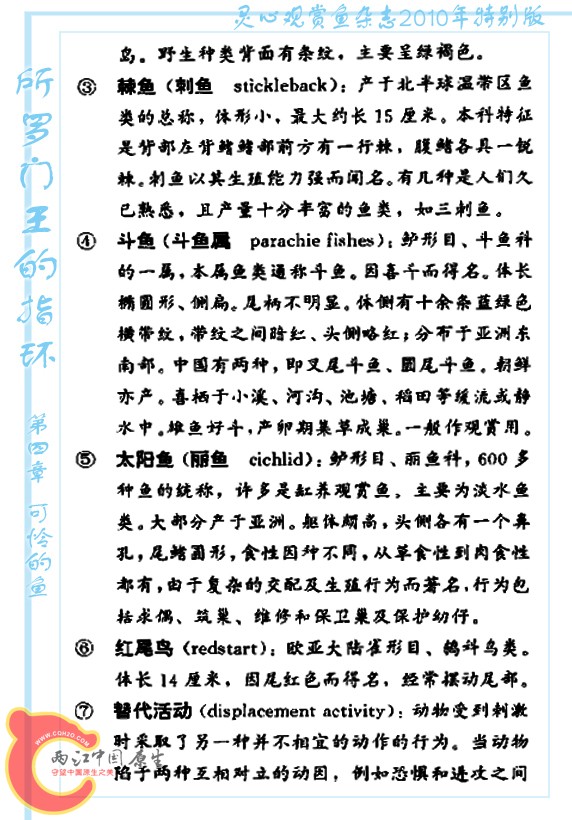 灵心观赏鱼杂志2010年特别版
所罗门王的指环
第四章 可怜的鱼
岛。野生种类背面有条纹，主要呈绿褐色。
③ 棘鱼（刺鱼 stickleback）：产于北半球温带区鱼
类的总称，体形小，最大约长 15 厘米。本科特征
是背部在背鳍鳍部前方有一行棘，腹鳍各具一锐
棘。刺鱼以其生殖能力强而闻名。有几种是人们久
已熟悉，且产量十分丰富的鱼类，如三刺鱼。
④ 斗鱼（斗鱼属 parachie fishes）：鲈形目、斗鱼科
的一属，本属鱼类通称斗鱼。因喜干而得名。体长
椭圆形、侧扁。尾柄不明显。体侧有十余条蓝绿色
横带纹，带纹之间暗红、头侧略红；分布于亚洲东
南部。中国有两种，即叉尾斗鱼、圆尾斗鱼。朝鲜
亦产。喜栖于小溪、河沟、池塘、稻田等缓流或静
水中。雄鱼好斗，产卵期集草成巢。一般作观赏用。
⑤ 太阳鱼（丽鱼 cichlid）：鲈形目、丽鱼科，600 多
种鱼的统称，许多是缸养观赏鱼。主要为淡水鱼
类。大部分产于亚洲。躯体颇高，头侧各有一个鼻
孔，尾鳍圆形，食性因种不同，从草食性到肉食性
都有，由于复杂的交配及生殖行为而著名，行为包
括求偶、筑巢、维修和保卫巢及保护幼仔。
⑥ 红尾鸟（redstart）：欧亚大陆雀形目、鸫科鸟类。
体长 14 厘米，因尾红色而得名，经常摆动尾部。
⑦ 替代活动（displacement activity）：动物受到刺激
时采取了另一种并不相宜的动作的行为。当动物
陷于两种互相对立的动因，例如恐惧和进攻之间
WWW.CQHZO.COM
两江中国原生
守望中国原生之美